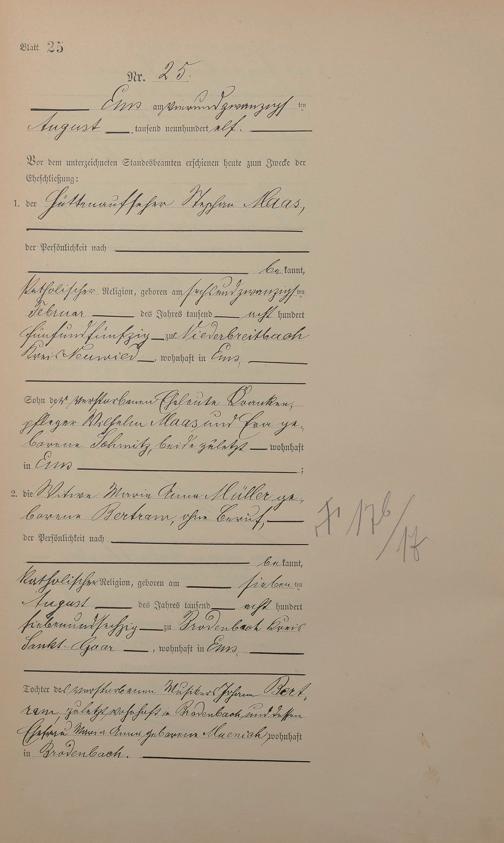 Blatt 25
Nr. 25.
Ems am vierundzwanzigsten
August, tausend neunhundert elf.
Vor dem unterzeichneten Standesbeamten erschienen heute zum Zwecke der
Eheschließung:
1. der Hüttenaufseher Stephan Maas,
der Persönlichkeit nach
bekannt,
katholischer Religion, geboren am sechsundzwanzigsten
Februar des Jahres tausend acht hundert
fünfundfünfzig zu Niederbreitbach
Kreis Neuwied, wohnhaft in Ems
Sohn der verstorbenen Eheleute Kranken-
pfleger Wilhelm Maas und Eva ge-
borene Schmitz, beide zuletzt wohnhaft
in Ems ;
2. die Witwe Maria Anna Müller ge-
borene Bertram, ohne Beruf,
der Persönlichkeit nach
bekannt,
katholischer Religion, geboren am sieben ten
August des Jahres tausend acht hundert
siebenundsechzig zu Brodenbach Kreis
Sankt-Goar, wohnhaft in Ems
Tochter des verstorbenen Musikers Johann Bert-
ram, zuletzt wohnhaft in Brodenbach, und dessen
Ehefrau Maria Anna geborene wohnhaft
in Brodenbach.
17b/17